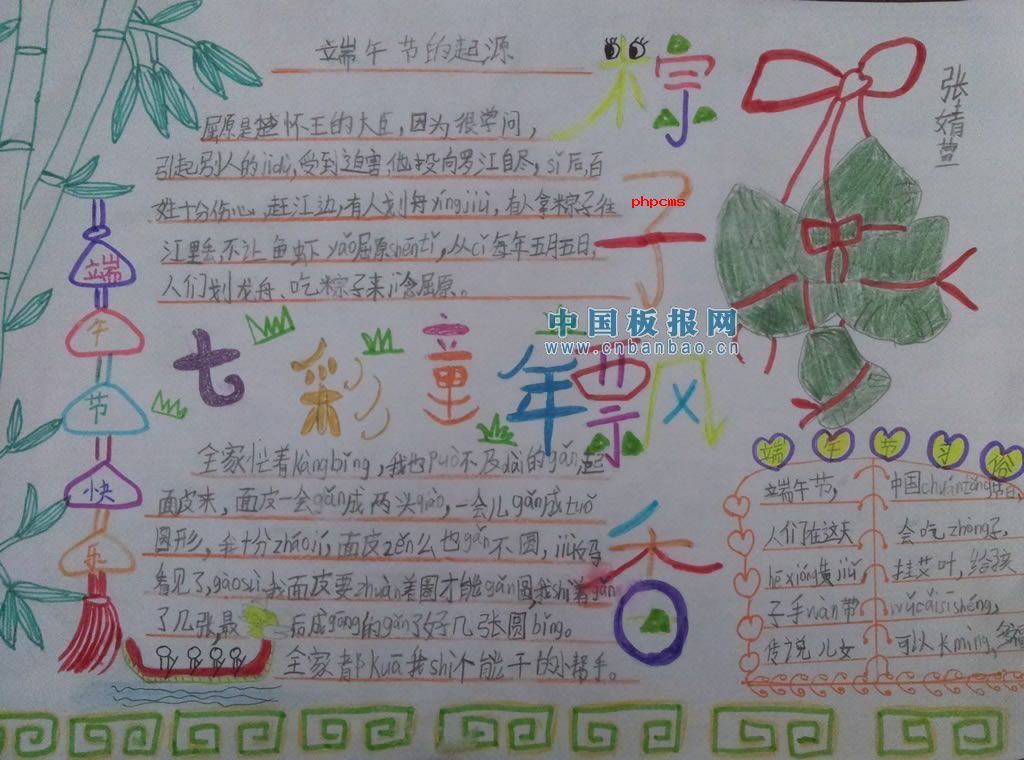 端午节的起源
屈原是楚怀王的大臣，因为很学问，
引起别人的jídù，受到迫害，他投向罗江自尽，sǐ后，百
姓十分伤心，赶江边，有人划舟xíngjiù，有人拿粽子往
江里丢，不让鱼虾yǎo屈原shēntǐ，从cǐ每年五月五日，
人们划龙舟、吃粽子来jì念屈原。
粽
子
飘
香
phpcms
张婧萱
中国板报网
www.cnbanbao.cn
端
午
节
快
乐
七彩童年
全家忙着kǎngbǐng，我也pùò不及dài的gǎn起
面皮来，面皮一会gǎn成两头gāo，一会儿gǎn成tuǒ
圆形，我十分zhāojí，面皮zěn么也gǎn不圆，
看见了，gàosù我面皮要zhuàn着圈才能gǎn圆，我shì着gǎn
了几张，最后成gōng的gǎn了好几张圆bǐng。
全家都kuā我shì个能干的小帮手。
端午节习俗
端午节，
人们在这天
hē xióng黄jiǔ
子手wàn带
传说儿女
中国chuántǒng节日，
会吃zhòng子，
挂艾叶，给孩
wǔcǎisīshéng，
可以